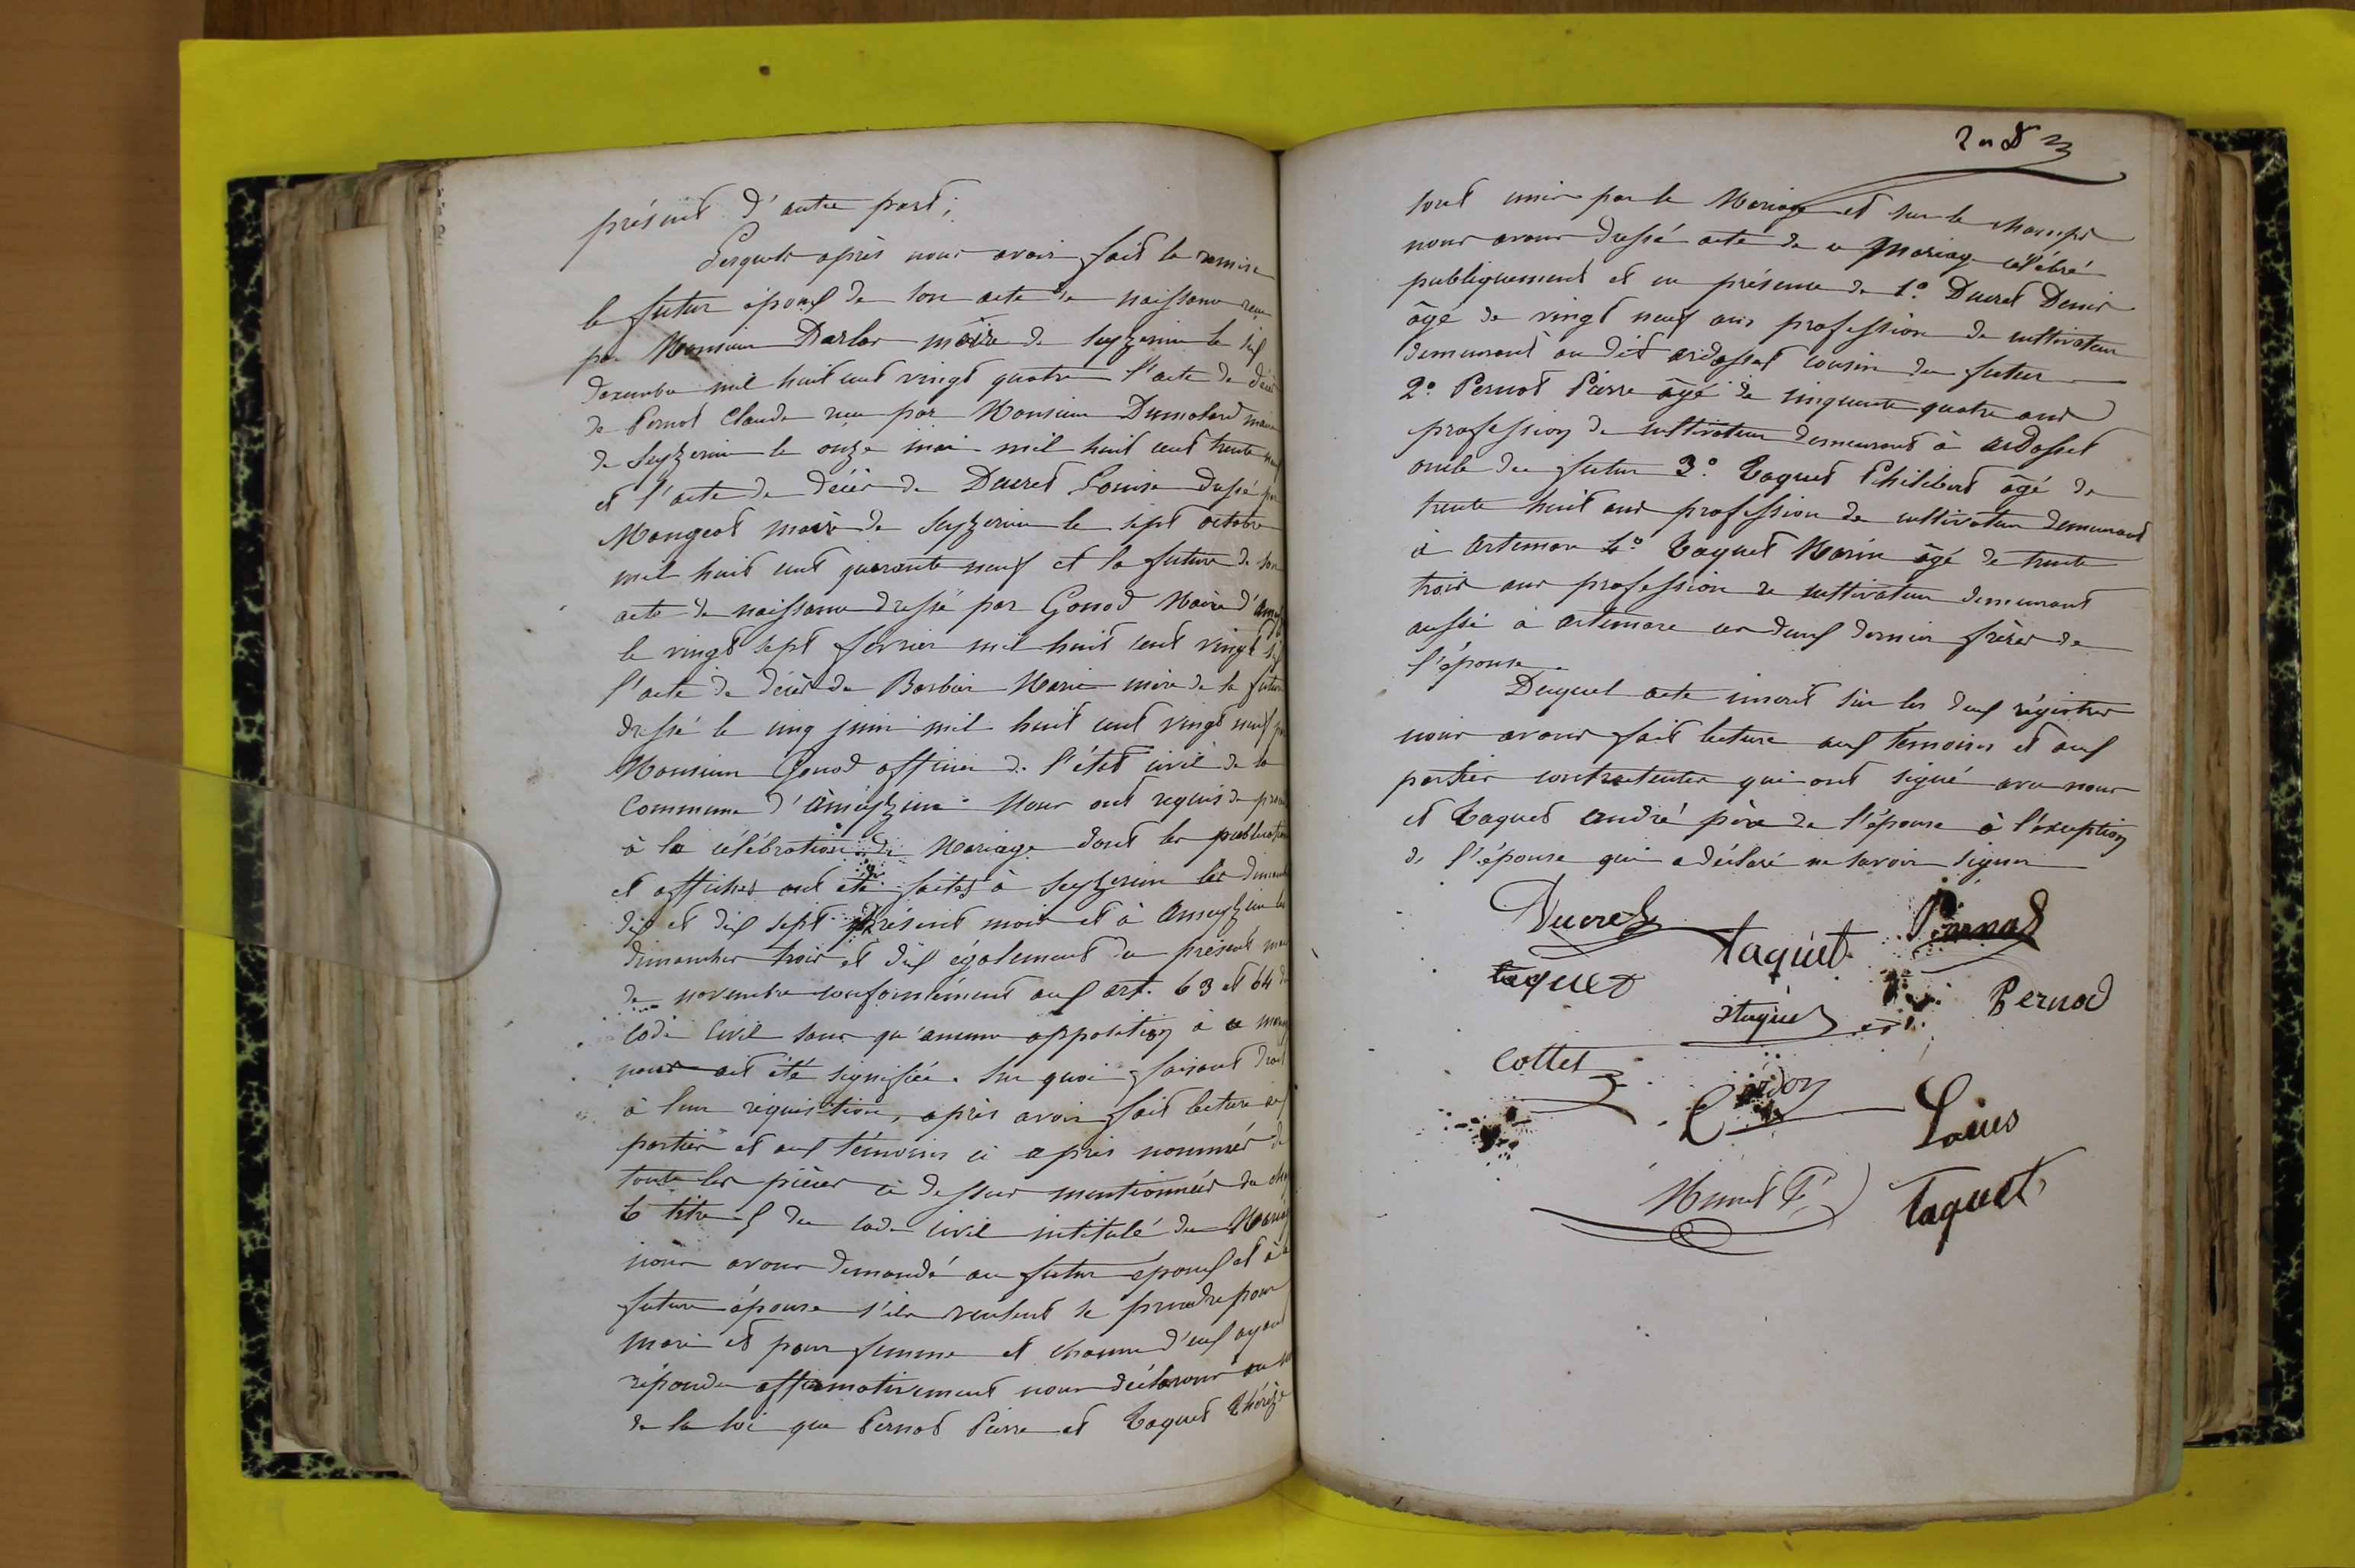 présent d'autre part;
Lesquels après nous avoir fait la remise
le futur époux de son acte de naissance reçu
par Monsieur Darlos maire de Seyzerieu le six
decembre mil huit cent vingt quatre l'acte de décès
de Pernod Claude reçu par Monsieur Dumolard maire
de Seyzerieu le onze mai mil huit cent trente neuf
et l'acte de décès de Ducret Louise dressé par
Mangeot maire de Seyzerieu le sept octobre
mil huit cent quarante neuf et la future de son
acte de naissance dressé par Gonod Maire d'
le vingt sept fevrier mil huit cent vingt
l'acte de décès de Barbier Marie mère de la future
dressé le cinq juin mil huit cent vingt neuf par
Monsieur Gonod officier de l'état civil de la
Commune d'Ameyzieu. Nous ont requis de
à la célébration du Mariage dont les publications
et affiches ont été faites à Seyzerieu les dimanches
dix et dix sept présent mois et à Ameyzieu les
dimanches trois et dix également du présent mois
de novembre conformément aux art. 63 et 64 du
Code Civil sans qu'aucune opposition à ce mariage
nous ait été signifiée. Sur quoi faisant droit
à leur réquisition, après avoir fait lecture aux
parties et aux témoins ci après nommés de
toute les pièces ci dessus mentionnées du
6 titre 5 du code civil intitulé du Mariage
nous avons demandé au futur époux et à la
future épouse s'ils veulent se prendre pour
mari et pour femme et chacun d'eux ayant
répondu affirmativement nous déclarons au nom
de la loi que Pernod Pierre et Taquet Thérèze
sont unis par le Mariage et sur le champs
nous avons dressé acte de ce Mariage célébré
publiquement et en présence de 1° Ducret Denis
âgé de vingt neuf ans profession de cultivateur
demeurant au dit ardosset cousin du futur
2° Pernod Pierre âgé de cinquante quatre ans
profession de cultivateur demeurant à ardosset
oncle du futur 3° Taquet Philibert âgé de
trente huit ans profession de cultivateur demeurant
à Artemare 4° Taquet Marin âgé de trente
trois ans profession de cultivateur demeurant
aussi à artemare ces deux dernier frères de
l'épouse.
Duquel acte inscrit sur les deux régistres
nous avons fait lecture aux témoins et aux
parties contractentes qui ont signé avec nous
et Taquet André père de l'épouse à l'éxception
de l'épouse qui a déclaré ne savoir signer
Ducret
taquet
Pernod
taquet
Pernod
Cottet
Louis
Taquet